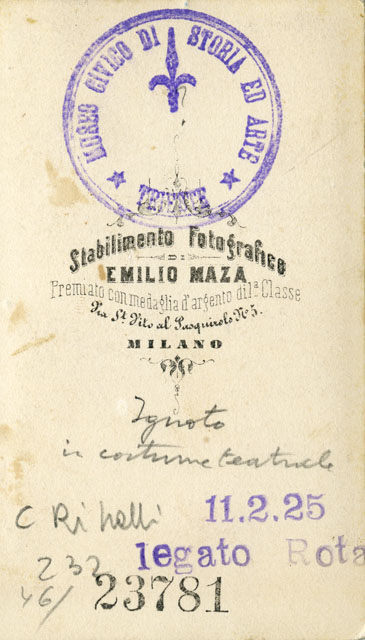 MUSEO CIVICO DI STORIA ED ARTE
TRIESTE
Stabilimento Fotografico
DI
EMILIO MAZA
Premiato con medaglia d'argento di 1ª Classe
Via St. Vito al Pasquirolo No 5.
MILANO
Ignoto
in costume teatrale
C
11.2.25
232
legato Rota
46/
23781